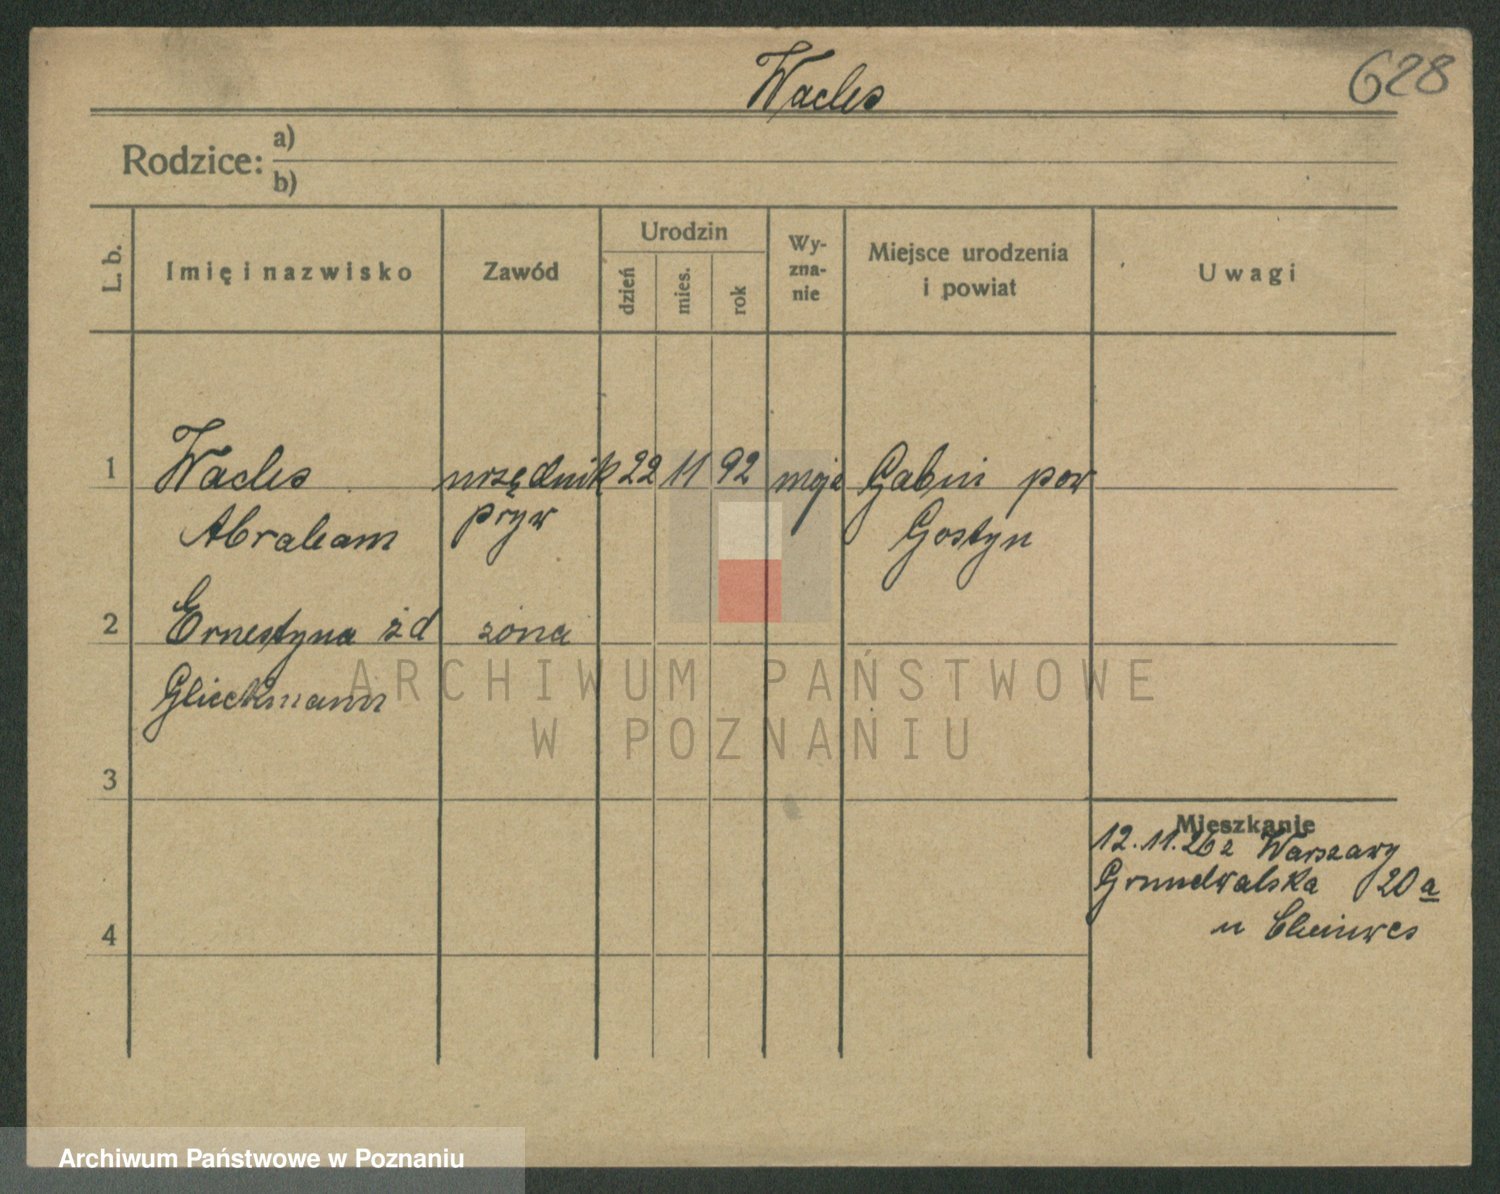 Wacles
628
Rodzice: a)
b)
L. b.
Imię i nazwisko
Zawód
Urodzin
dzień
mies.
rok
Wy-
zna-
nie
Miejsce urodzenia
i powiat
Uwagi
1 Wacles urzędnik 22 11 92 mojż Gabin pow
Abraham pryw Gostyn
2 Ernestyna żd żona
Glückmann
3
Mieszkanie
12.11.26 z Warszawy
Grundwalska 20a
4
u
ARCHIWUM PAŃSTWOWE
W POZNANIU
Archiwum Państwowe w Poznaniu